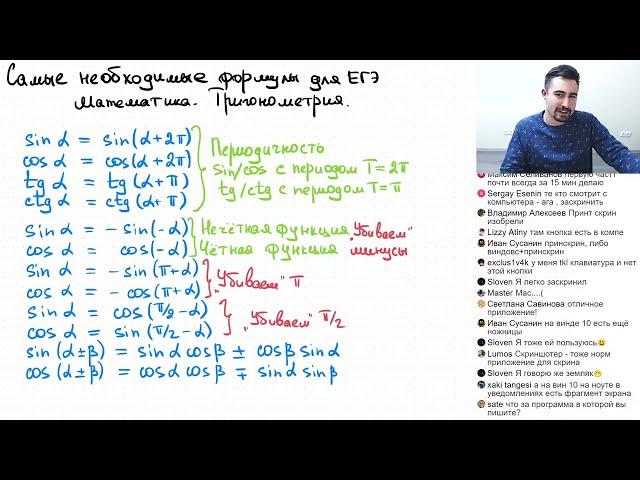 Самые необходимые формулы для ЕГЭ
Математика. Тригонометрия.
sin α = sin(α+2π)
cos α = cos(α+2π)
tg α = tg(α+π)
ctg α = ctg(α+π)
Периодичность
sin/cos с периодом T=2π
tg/ctg с периодом T=π
sin α = -sin(-α) Нечётная функция
cos α = cos(-α) Чётная функция
"Убиваем" минусы
sin α = -sin(π+α)
cos α = -cos(π+α)
"Убиваем" π
sin α = cos(π/2-α)
cos α = sin(π/2-α)
"Убиваем" π/2
sin(α±β) = sin α cos β ± cos β sin α
cos(α±β) = cos α cos β ∓ sin α sin β
Максим Селиванов первую част
почти всегда за 15 мин делаю
Sergay Esenin те кто смотрит с
компьютера - ага , заскринить
Владимир Алексеев Принт скрин
изобрели
Lizzy Atiny там кнопка есть в компе
Иван Сусанин принскрин, либо
виндовс+принскрин
exclus1v4k у меня tkl клавиатура и нет
этой кнопки
Sloven Я легко заскринил
Master Mac....(
Светлана Савинова отличное
приложение!
Иван Сусанин на винде 10 есть ещё
ножницы
Sloven Я тоже ей пользуюсь
Lumos Скриншотер - тоже норм
приложение для скрина
Sloven Я говорю же земляк
xaki tangesi а на вин 10 на ноуте в
уведомлениях есть фрагмент экрана
sate что за программа в которой вы
пишите?